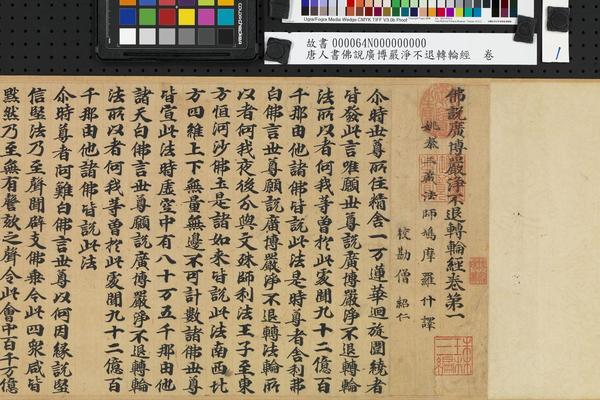 Ugra/Fogra Media Wedge CMYK TIFF V3.0b Proof
故書 000064N000000000
唐人書佛說廣博嚴淨不退轉輪經 卷
1
佛說廣博嚴淨不退轉輪經卷第一
姚秦三藏法師鳩摩羅什譯
校勘僧紹仁
尒時世尊所住精舍一万蓮華迴旋圍繞者
皆發此言唯願世尊說廣博嚴淨不退轉輪
法所以者何我等曾於此處聞九十二億百
千那由他諸佛皆說此法是時尊者舍利弗
白佛言世尊願說廣博嚴淨不退轉法輪所
以者何我夜後分與文殊師利法王子至東
方恒河沙佛土是諸如來皆說此法南西北
方四維上下無量無邊不可計數諸佛世尊
皆宣此法時虛空中有八十万五千那由他
諸天白佛言世尊願說廣博嚴淨不退轉輪
法所以者何我等曾於此處聞九十二億百
千那由他諸佛皆說此法
尒時尊者阿難白佛言世尊以何因緣說堅
信堅法乃至聲聞辟支佛乘令此四衆咸皆
默然乃至無有聲欬之聲令此會中百千万億